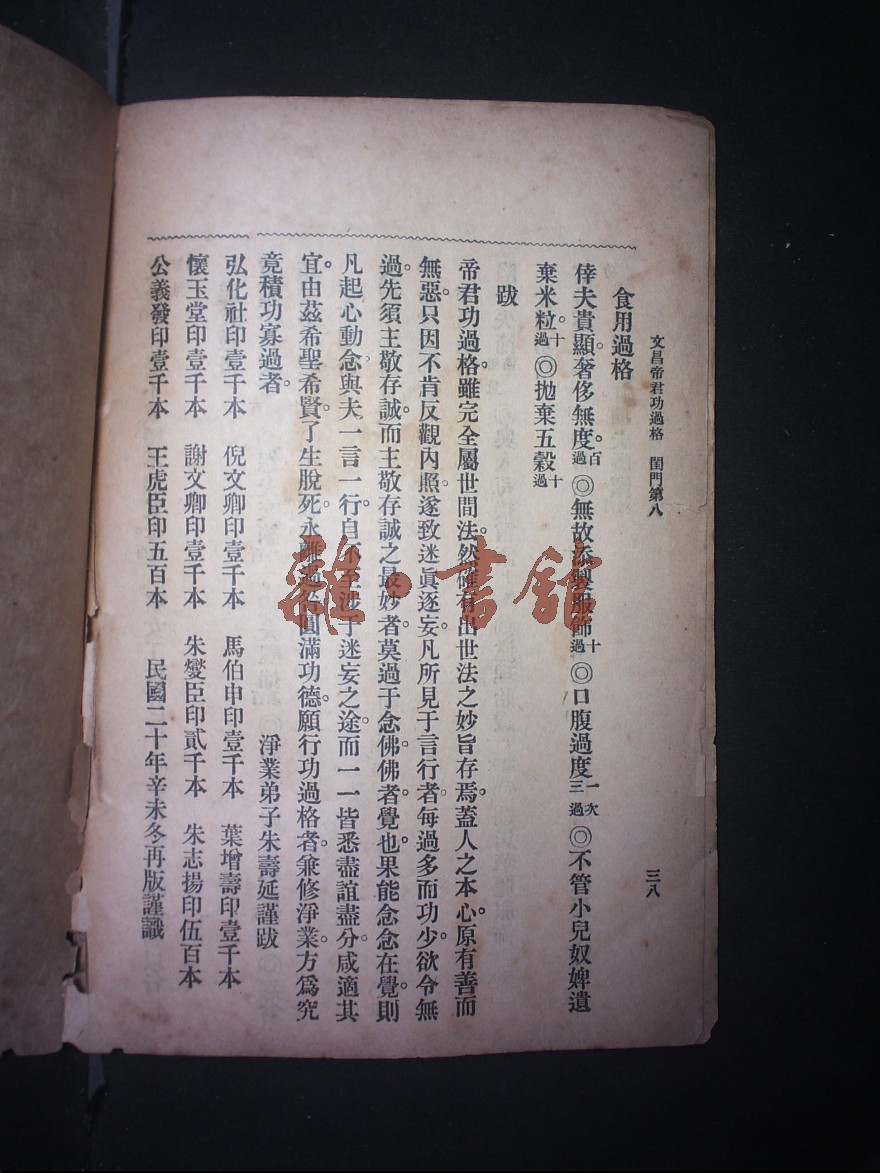 文昌帝君功過格　閨門第八　三八
食用過格
倖夫貴顯。奢侈無度。百過◎無故添製服飾十過◎口腹過度一次三過◎不管小兒奴婢遺
棄米粒。十過◎拋棄五穀十過
跋
帝君功過格。雖完全屬世間法。然確有出世法之妙旨存焉。蓋人之本心。原有善而
無惡。只因不肯反觀內照。遂致迷眞逐妄。凡所見于言行者。每過多而功少。欲令無
過。先須主敬存誠。而主敬存誠之最妙者。莫過于念佛。佛者。覺也。果能念念在覺。則
凡起心動念。與夫一言一行。自不至涉于迷妄之途。而一一皆悉盡誼盡分。咸適其
宜。由茲希聖希賢。了生脫死。永離過咎。圓滿功德。願行功過格者。兼修淨業。方爲究
竟積功寡過者。　淨業弟子朱壽延謹跋
弘化社印壹千本　倪文卿印壹千本　馬伯申印壹千本　葉增壽印壹千本
懷玉堂印壹千本　謝文卿印壹千本　朱燮臣印貳千本　朱志揚印伍百本
公義發印壹千本　王虎臣印五百本　民國二十年辛未冬再版謹識
雜·書館